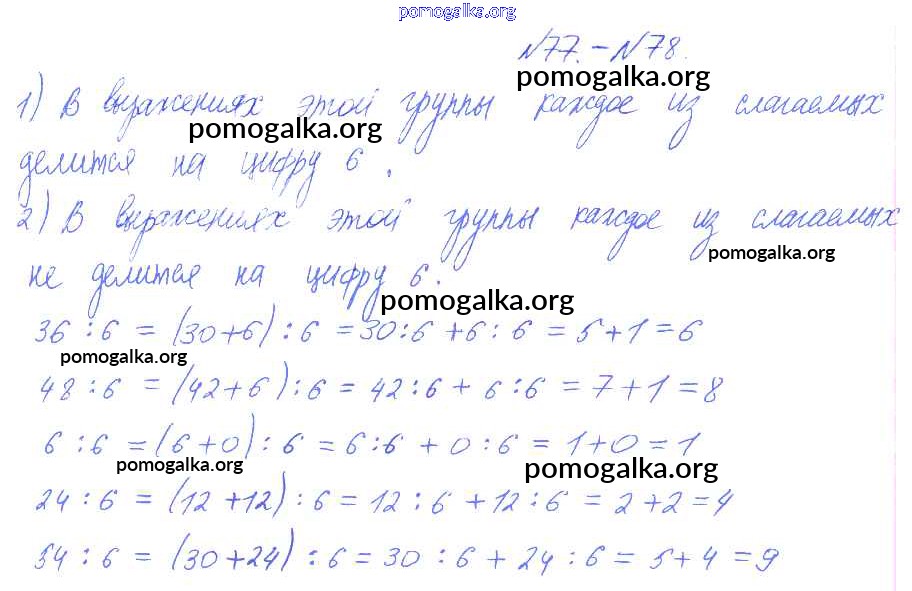 pomogalka.org
№77.-№78.
pomogalka.org
1) В выражениях этой группы каждое из слагаемых
pomogalka.org
делится на цифру 6.
2) В выражениях этой группы каждое из слагаемых
pomogalka.org
не делится на цифру 6.
pomogalka.org
36 : 6 = (30+6) : 6 = 30:6 + 6 : 6 = 5+1 = 6
pomogalka.org
48 : 6 = (42+6) : 6 = 42:6 + 6 : 6 = 7+1 = 8
6 : 6 = (6+0) : 6 = 6:6 + 0 : 6 = 1+0 = 1
pomogalka.org
pomogalka.org
24 : 6 = (12+12) : 6 = 12 : 6 + 12 : 6 = 2+2 = 4
54 : 6 = (30+24) : 6 = 30 : 6 + 24 : 6 = 5+4 = 9